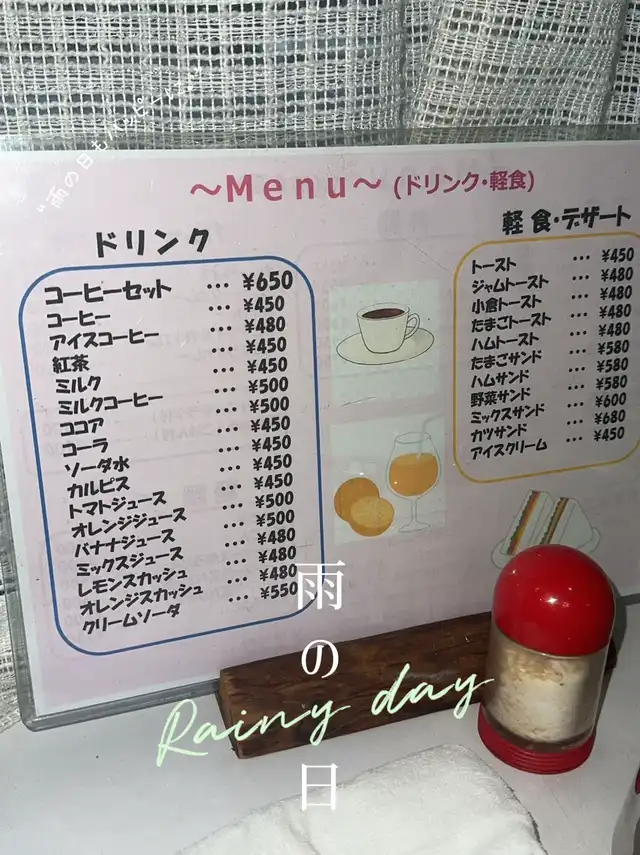 "雨の日もハッピーに"
～Menu～ (ドリンク・軽食)
ドリンク
コーヒーセット … ¥650
コーヒー … ¥450
アイスコーヒー … ¥480
紅茶 … ¥450
ミルク … ¥450
ミルクコーヒー … ¥500
ココア … ¥500
コーラ … ¥450
ソーダ水 … ¥450
カルピス … ¥450
トマトジュース … ¥450
オレンジジュース … ¥500
バナナジュース … ¥500
ミックスジュース … ¥480
レモンスカッシュ … ¥480
オレンジスカッシュ … ¥480
クリームソーダ … ¥550
軽食・デザート
トースト … ¥450
ジャムトースト … ¥480
小倉トースト … ¥480
たまごトースト … ¥480
ハムトースト … ¥480
たまごサンド … ¥580
ハムサンド … ¥580
野菜サンド … ¥580
ミックスサンド … ¥600
カツサンド … ¥680
アイスクリーム … ¥450
雨の日
Rainy day